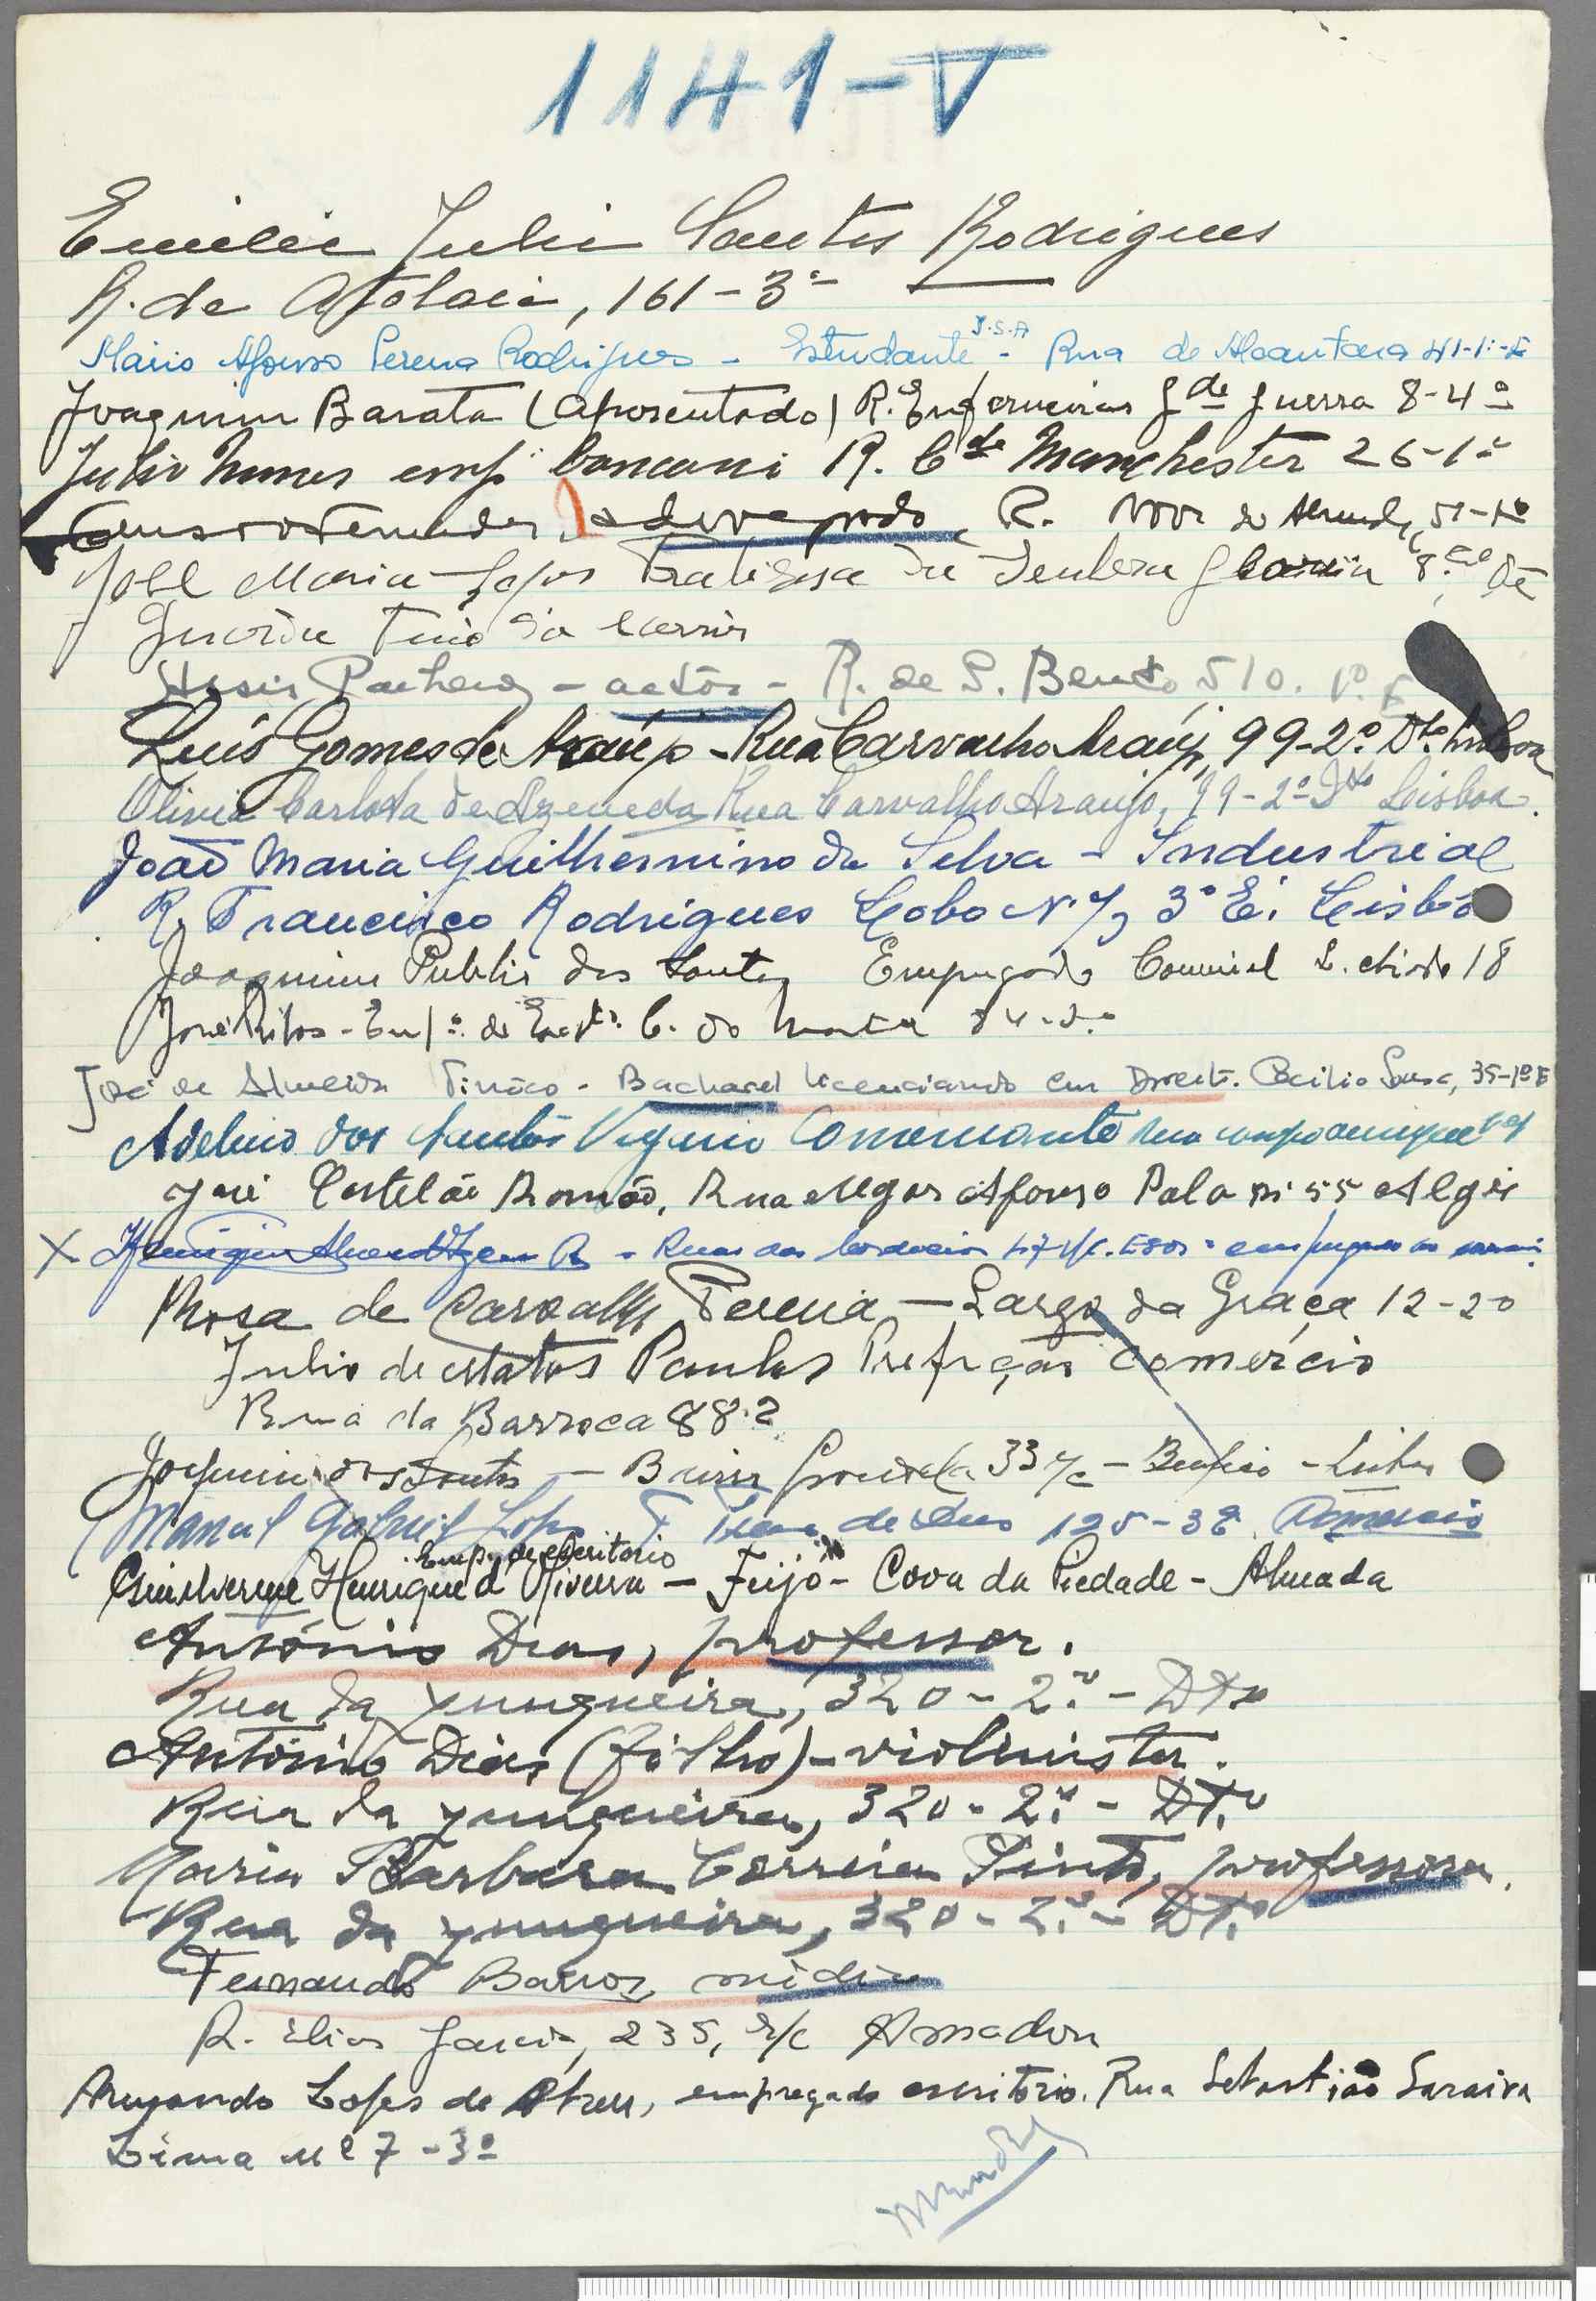 1141-V
Emilio Julio Santos Rodrigues
R. da Atalaia, 161-3º
J.S.A
Mário Afonso Pereira Rodrigues - Estudante - Rua de Alcantara 41-1º-E
Joaquim Barata (aposentado) R. Enfermeiras Gde Guerra 8-4º
Julio Nunes emp. bancario R. Cde Manchester 26-1º
advogado, R. Nova do Almada,
José Maria Lopes da
Guarda freio da Carris
Assis Pacheco - actor - R. de S. Bento, 510. 1º. E
Luís Gomes de Araújo - Rua Carvalho Araújo, 99-2º Dto Lisboa
Olivia Carlota de Azevedo Rua Carvalho Araujo, 99-2º Dto Lisboa.
João Maria Guilhermino da Silva - Industrial
R. Francisco Rodrigues Lobo Nº 7, 3º E. Lisboa
Joaquim Publio dos Santos Empregado 18
José - C. do
José de Almeida Tinôco - Bacharel licenciando em Direito. Cecilio Sousa, 35-1º E
Adelino dos Santos
José Castelão Romão, Rua Afonso Pala nº 55 Algés
X
Rosa de Carvalho Pereira - Largo da Graça 12-2º
Julio de Matos Paulos comércio
Rua da Barroca 88-2
Joaquim dos Santos - Bairro Grandela 33 r/c - Benfica - Lisboa
Manuel Gabriel Lopes de Deus 125-3º E
Emp. de escritorio
Guilherme Henrique d'Oliveira - Feijó - Cova da Piedade - Almada
António Dias, professor.
Rua da Junqueira, 320-2º - Dto
António Dias (filho) - violinista.
Rua da Junqueira, 320-2º - Dto
Maria Barbara Correia Pinto, professora.
Rua da Junqueira, 320-2º - Dto
Fernando Barros, médico
R. Elias Garcia, 235, r/c Amadora
Armando Lopes de Abreu, empregado escritório. Rua Sebastião Saraiva
Lima nº 7-3º